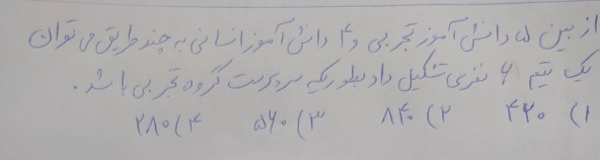 از بین ۵ دانش آموز تجربی و ۴ دانش آموز انسانی به چند طریق می توان
یک تیم ۶ نفری تشکیل داد بطوریکه سرپرست گروه تجربی باشد.
۱) ۴۲۰ ۲) ۸۴۰ ۳) ۵۶۰ ۴) ۲۸۰